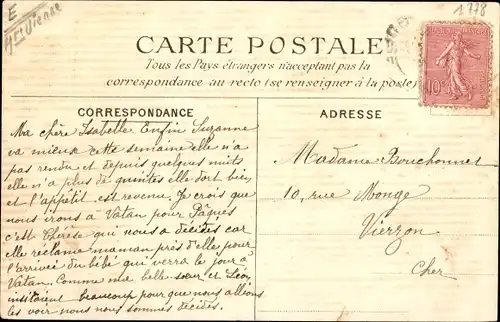 E
Hte Vienne
1778
CARTE POSTALE
Tous les Pays étrangers n'acceptant pas la
correspondance au recto (se renseigner à la poste)
10c
CORRESPONDANCE
Ma chère Isabelle. Enfin Suzanne
va mieux cette semaine elle n'a
pas rendu et depuis quelques nuits
elle n'a plus de quintes elle dort bien
et l'appétit est revenu. Je crois que
nous irons à Vatan pour Pâques
c'est Thérèse qui nous a décidés car
elle réclame maman près d'elle pour
l'arrivée du bébé qui verra le jour à
Vatan. Comme ma belle sœur et Léon
insistaient beaucoup pour que nous allions
les voir nous nous sommes décidés.
ADRESSE
Madame Bouchonnet
10, rue Monge
Vierzon
Cher